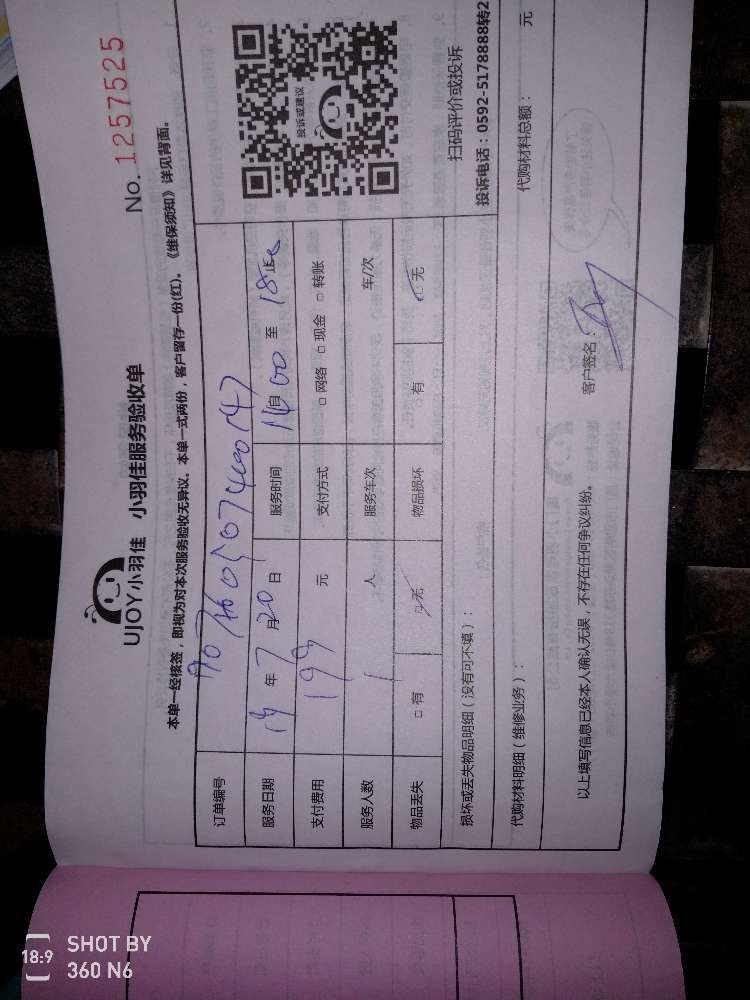 UJOY小羽佳 小羽佳服务验收单
No. 1257525
本单一经核签，即视为对本次服务验收无异议。本单一式两份，客户留存一份(红)。《维保须知》详见背面。
订单编号
服务日期 19 年 7 月 20 日 服务时间 14 自 00 至 18
支付费用 199 元 支付方式 □ 网络 □ 现金 □ 转账
服务人数 1 人 服务车次 车/次
物品丢失 □ 有 □ 无 物品损坏 □ 有 □ 无
投诉或建议
扫码评价或投诉
投诉电话：0592-5178888转2
损坏或丢失物品明细（没有可不填）：
代购材料明细（维修业务）： 代购材料总额： 元
以上填写信息已经本人确认无误，不存在任何争议纠纷。 客户签名：
18:9 SHOT BY
360 N6